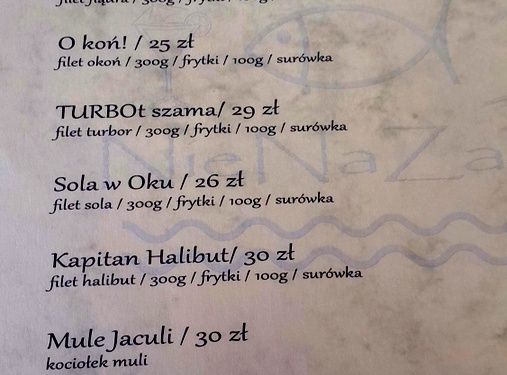 filet flądra / 300g / frytki / 100g /
O koń! / 25 zł
filet okoń / 300g / frytki / 100g / surówka
TURBOt szama/ 29 zł
filet turbor / 300g / frytki / 100g / surówka
NieNaZa
Sola w Oku / 26 zł
filet sola / 300g / frytki / 100g / surówka
Kapitan Halibut/ 30 zł
filet halibut / 300g / frytki / 100g / surówka
Mule Jaculi / 30 zł
kociołek muli